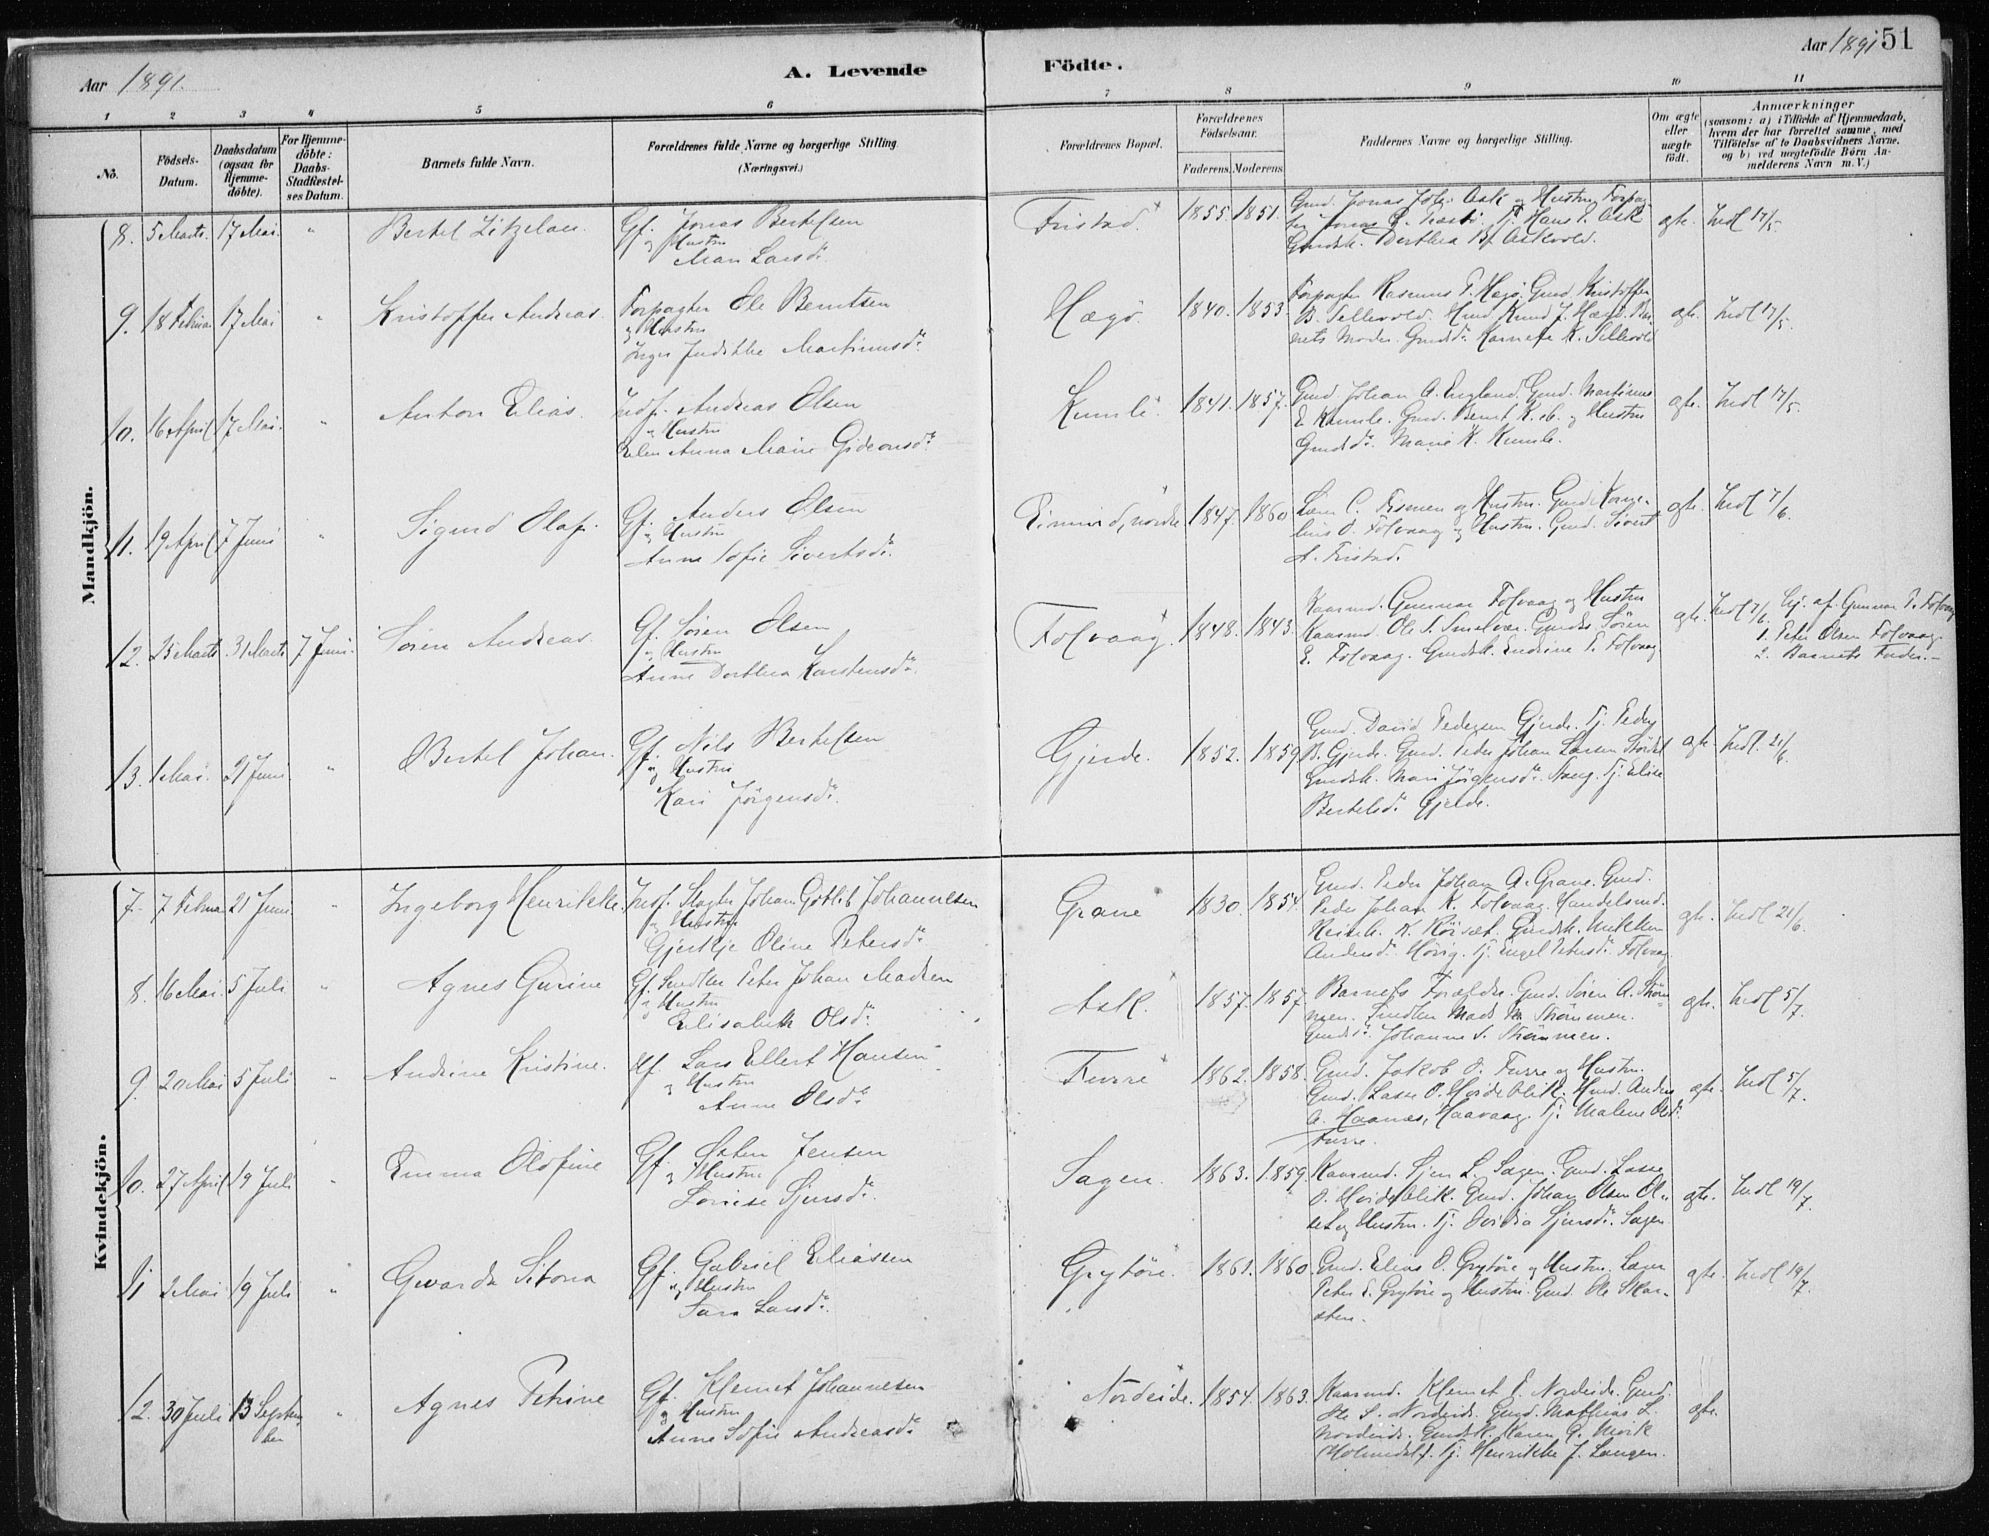 Aar 1891.
A. Levende
Födte.
Aar 1891 51
1 2 3 4 5 6 7 8 9 10 11
No.
Födsels-
Datum.
Daabsdatum
(ogsaa for
Hjemme-
döbte).
For Hjemme-
döbte:
Daabs-
Stadfæstel-
ses Datum.
Barnets fulde Navn.
Forældrenes fulde Navne og borgerlige Stilling.
(Næringsvei.)
Forældrenes Bopæl.
Forældrenes
Födselsaar.
Faderens. Moderens.
Faddernes Navne og borgerlige Stilling.
Om ægte
eller
uægte
födt.
Anmærkninger
(saasom: a) i Tilfælde af Hjemmedaab,
hvem der har forrettet samme, med
Tilföielse af to Daabsvidners Navne.
og b) ved uægtefödte Börn An-
melderens Navn m. V.)
Mandkjön.
8. 5 Marts. 17 Mai. " Bertel Gf. Jonas Bertelsen
og Hustru
Mari Larsdr.
Fristad. 1855. 1851. Hans P. Ask
Gmdsk. Dorthea Askvold.
gte. Indl 17/5.
9. 18 Februar 17 Mai " Kristoffer Andreas. Forpagter Ole Berntsen
og Hustru
Inger Martinusdr.
Hægö. 1840. 1853 Forpagter Rasmus P. Hægö. Gmd. Kristoffer
B. Tellevold. Knud J. Hægö. Bar-
nets Moder. K. Tellevold
gte. Indl 17/5.
10. 16 April 17 Mai. " Anton Elias. Indf. Andreas Olsen
og Hustru
Elen Anna Marie Gideonsdr.
Kumle. 1841. 1857. Gmd. Johan A. England. Gmd. Martinus
E. Kumle. Gmd. Bernt K. ib. og Hustru
Gmdsdr. Marie K. Kumle.
gte. Indl 17/5.
11. 19 April 7 Juni " Sigurd Olaf. Gf. Anders Olsen
og Hustru
Anne Sofie Sivertsdr.
nordre 1847. 1860 og Hustru. Gmd. Korne-
lius O. Folvaag og Hustru. Gmd. Sivert
A. Fristad.
gte. Indl 7/6.
12. 25 Marts 31 Marts 7 Juni. Sören Andreas. Gf. Sören Olsen
og Hustru
Anne Dorthea Karstensdr.
Folvaag. 1848. 1843. Kaarmd. Gunnar Folvaag og Hustru
Kaarmd. Ole S. Sören
E. Folvaag. Gmdsk. Endrine P. Folvaag
gte. Indl 7/6 Hj. af Gunnar P. Folvaag
1. Peter Olsen Folvaag.
2. Barnets Fader.
13. 1 Mai. 21 Juni " Bertel Johan. Gf. Nils Bertelsen
og Hustru
Kari Jörgensdr.
Gjerde. 1852. 1859 Gmd. David Pedersen Gjerde. Tj. Peder
B. Gjerde. Gmd. Peder Johan Larsen
Gmdsk. Mari Jörgensdr. Tj. Elise
Bertelsdr. Gjerde.
gte. Indl. 21/6.
Kvindekjön.
7. 7 Februar 21 Juni " Ingeborg Henrikke. Indf. Slagter Johan Gotlib Johannesen
og Hustru
Gjertje Oline Petersdr.
Grane 1830. 1854. Gmd. Peder Johan A. Grane. Gmd.
Peder Johan K. Folvaag. Handelsmd.
Gmdsk.
Andersdr. Tj. Engel Petersdr. Folvaag
gte. Indl 21/6.
8. 16 Mai 5 Juli " Agnes Gurine Gf. Snedker Peter Johan Madsen
og Hustru
Elisabeth Olsdr.
Ask. 1857. 1857. Barnets Forældre. Gmd. Sören A. Ström-
men. Snedker Mads M. Strömmen.
Gmdsdr. Johanne S. Strömmen.
gte. Indl 5/7.
9. 20 Mai 5 Juli " Andrine Kristine. Gf. Lars Ellert Hansen
og Hustru
Anne Olsdr.
Furre 1862. 1858. Gmd. Jakob O. Furre og Hustru.
Gmd. Lasse O. Anders
A. Haanes, Haavaag. Tj. Malene Olsdr.
Furre.
gte. Indl 5/7.
10. 27 April 19 Juli " Emma Olofine Gf. Jensen
og Hustru
Lovise Sjursdr.
Sagen. 1863. 1859. Kaarmd. Sjur L. Sagen. Gmd. Lasse
Gmd. Johan Olsen
og Hustru. Tj. Sjursdr. Sagen
gte. Indl 19/7.
11 2 Mai 19 Juli " Gf. Gabriel Eliassen
og Hustru
Larsdr.
Grytöre. 1861. 1860. Gmd. Elias O. Grytöre og Hustru. Lærer
Peter E. Grytöre og Hustru. Gmd. Ole Skar-
sten.
gte. Indl 19/7.
12. 30 Juli 13 Septem-
ber " Agnes Petrine Gf. Klemet Johannesen
og Hustru
Anne Sofie Andreasdr.
Nordeide. 1854. 1863. Kaarmd. Klemet Nordeide. Gmd.
Ole S. Nordeide. Gmd. Mathias L.
Nordeide. Gmdsk. Karen
Tj. Henrikke J. Langen.
gte.